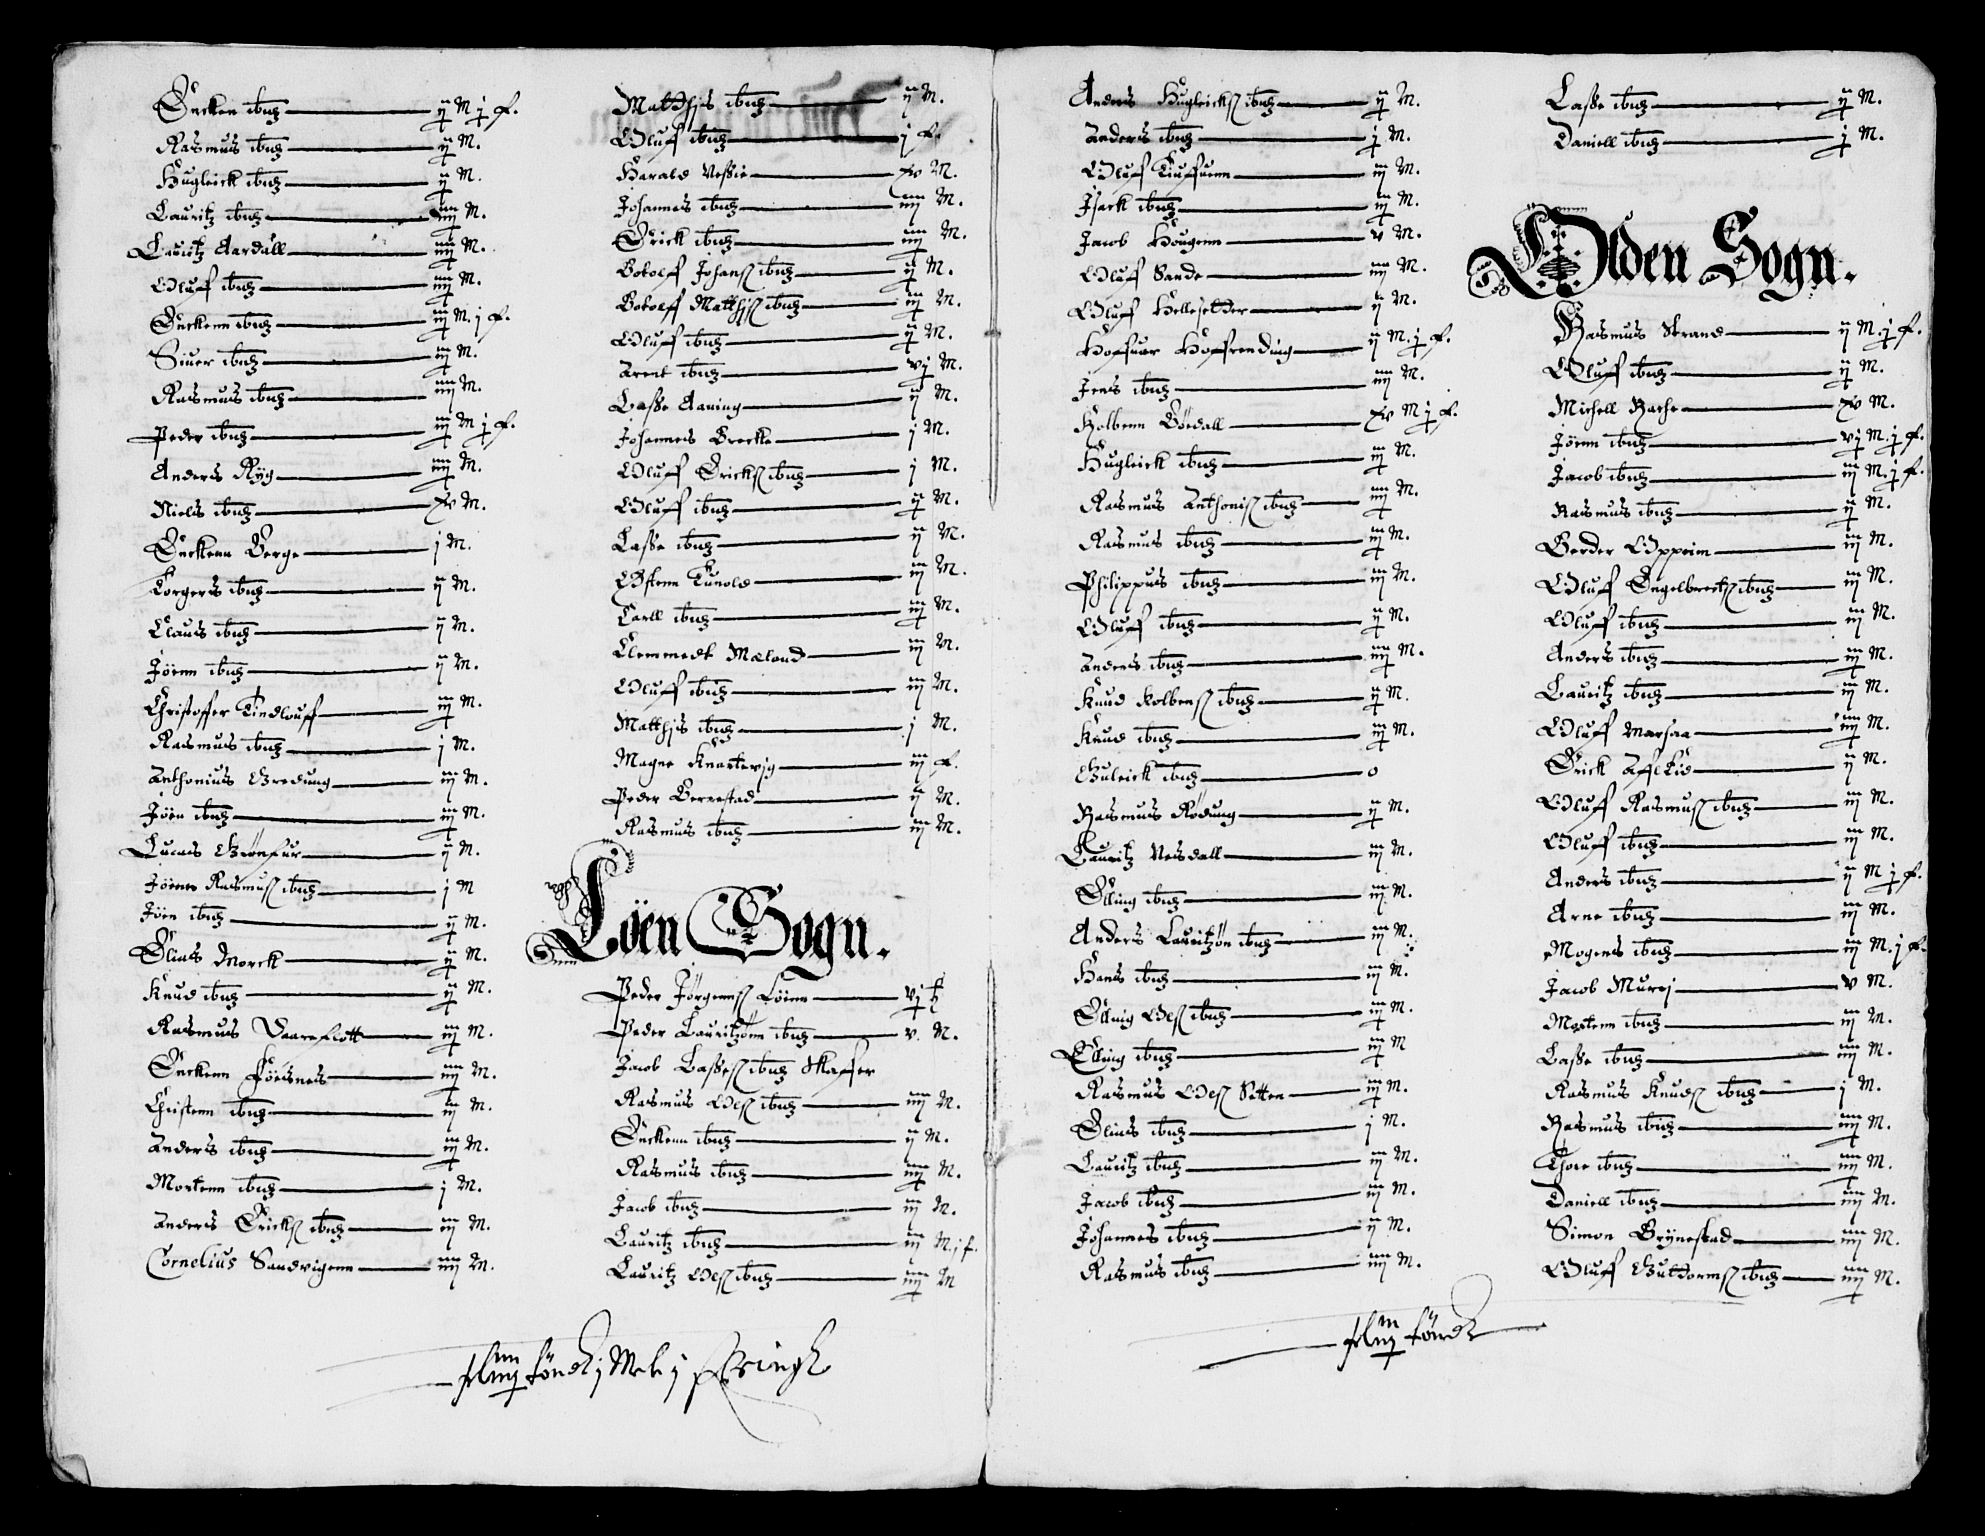 Enckenn ibid ij M j f.
Rasmus ibid ij M.
Hugleick ibid ij M.
Lauritz ibid iiij M.
Lauritz Aardall iiij M.
Oluff ibid iiij M.
Enckenn ibid iij M. j f.
Siuer ibid iij M.
Rasmus ibid iiij M.
Peder ibid iij M j f.
Anders Ryg iiij M.
Niels ibid xv M.
Enckenn Berge j M.
Torgers ibid ij M.
Claus ibid ij M.
Jöenn ibid ij M.
Christoffer Tindlouff iij M.
Rasmus ibid j M.
Anthonius Gredung iij M.
Jöen ibid iij M.
Lucas Grönfur ij M.
Jöenn Rasmuss ibid j M
Jöen ibid ij M.
Elias Morck ij M.
Knud ibid ij M.
Rasmus Vaareflott iij M.
Enckenn Föesnes iiij M.
Christenn ibid iij M.
Anders ibid iij M.
Mortenn ibid j M.
Anders Ericks ibid iij M.
Cornelius Sandvigenn iiij M.
Matthjs ibid ij M.
Oluff ibid j f.
Harald Nessie xv M.
Johannes ibid iiij M.
Erick ibid iiij M.
Botolff Johans ibid ij M.
Botolff Matthjs ibid iij M.
Oluff ibid ij M.
Arent ibid vj M.
Lasse Aaning ij M.
Johannes Brecke j M.
Oluff Ericks ibid j M.
Oluff ibid ij M.
Lasse ibid ij M.
Østenn Kunold iij M.
Carll ibid iij M.
Clemmedt Mæland iij M.
Oluff ibid iij M.
Matthjs ibid j M.
Magne Knartevig iij f.
Peder Berrestad ij M.
Rasmus ibid iij M.
Löen Sogn.
Peder Jörgenns Löenn vj
Peder Lauritzönn ibid v. M.
Jacob Lasses ibid Skaffer
Rasmus Oles ibid iiij M.
Enckenn ibid ij M.
Rasmus ibid iiij M.
Jacob ibid iij M.
Lauritz ibid iij M. j f.
Lauritz Oles ibid iiij M
Anders Hugleicks ibid ij M.
Anders ibid j M.
Oluff Tiuffuenn iij M.
Isack ibid iij M.
Jacob Hougenn v M.
Oluff Sande iiij M.
Oluff Helleseldter ij M.
Hoffuar Hoffrending ij M. j f.
Jens ibid iiij M.
Kolbenn Bödall xv M j f.
Hugleick ibid iij M.
Rasmus Anthonis ibid iiij M.
Rasmus ibid iij M.
Philippus ibid iij M.
Oluff ibid ij M.
Anders ibid iiij M.
Knud Kolbens ibid ij M.
Knud ibid iij M.
Guleick ibid o
Rasmus Rödung ij M.
Lauritz Nesdall iij M.
Elling ibid iij M.
Anders Lauritzön ibid iij M.
Hans ibid iij M.
Elling Oles ibid iij M.
Elling ibid iij M
Rasmus Oles Setten iij M.
Elias ibid j M.
Lauritz ibid iij M.
Jacob ibid iij M.
Johannes ibid ij M.
Rasmus ibid iiij M.
Lasse ibid ij M.
Daniell ibid j M.
Olden Sogn.
Rasmus Strand ij M. j f.
Oluff ibid ij M.
Michell Rache xv M.
Jöenn ibid vj M. j f.
Jacob ibid iij M. j f.
Rasmus ibid ij M.
Berder Oppeim iij M.
Oluff Engelbrets ibid iij M.
Oluff ibid iij M.
Anders ibid iij M.
Lauritz ibid iij M.
Oluff Marsaa iiij M.
Erick Affliid ij M.
Oluff Rasmuss ibid iij M.
Oluff ibid iij M.
Anders ibid ij M j f.
Arne ibid iij M.
Mogens ibid iij M. j f.
Jacob Murej v M.
Mortenn ibid iij M.
Lasse ibid iiij M.
Rasmus Knuds ibid j M.
Rasmus ibid iiij M.
Thore ibid iiij M.
Daniell ibid iiij M.
Simon Brynestad iiij M.
Oluff Guttorms ibid iiij M.